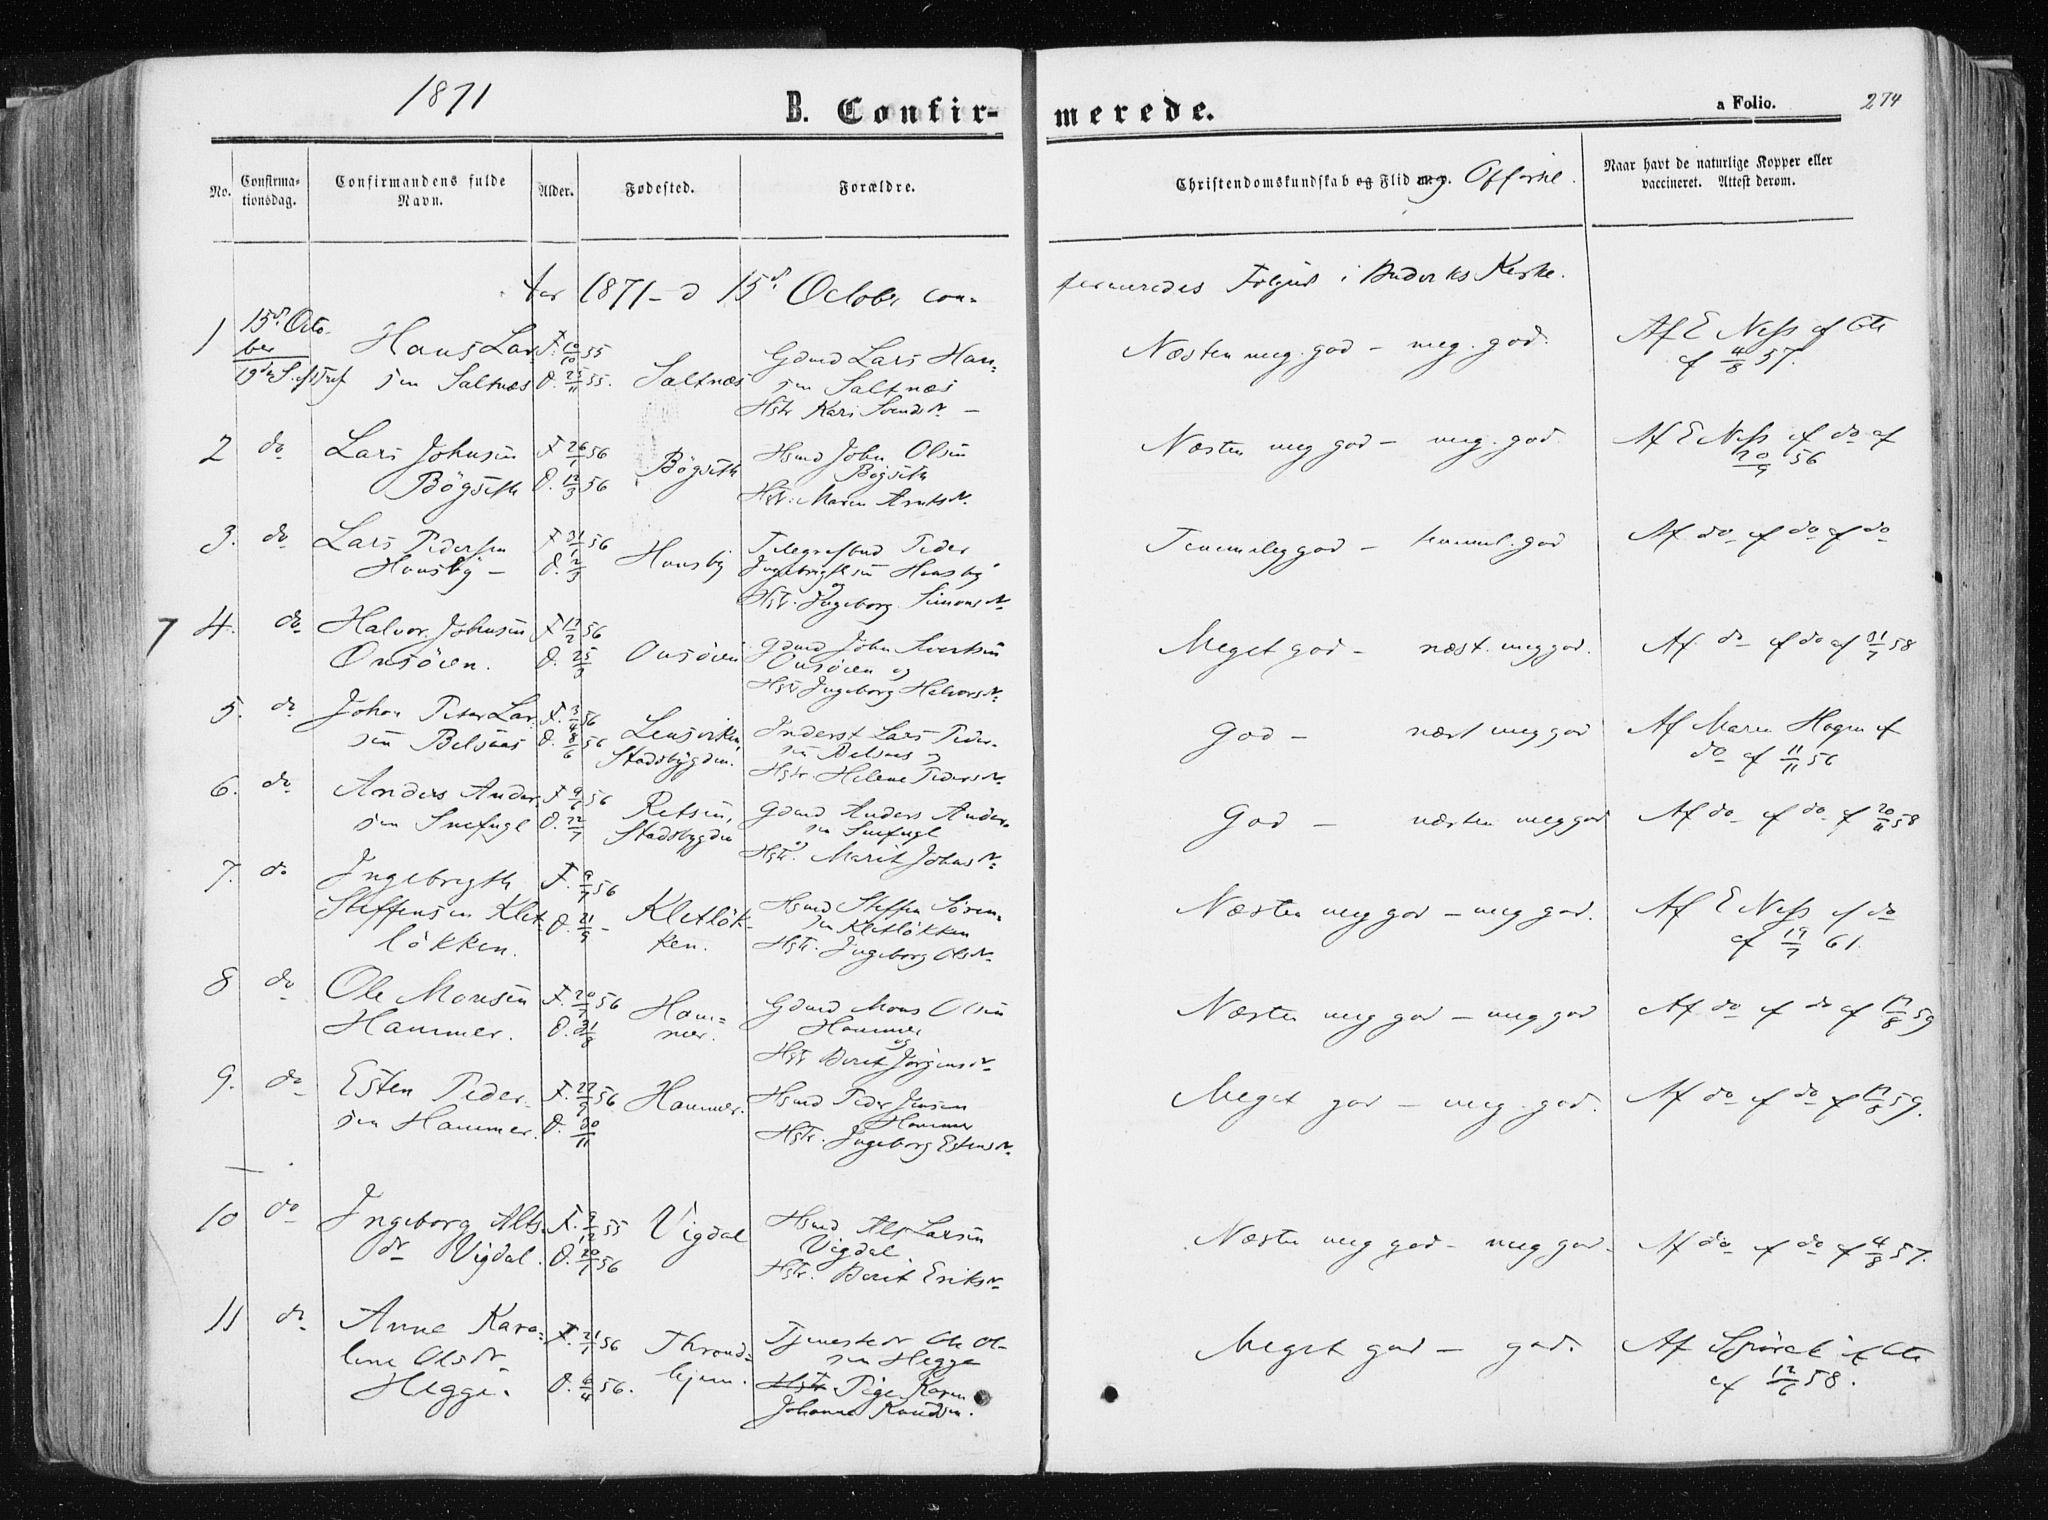 1871
B. Confir-
merede.
a Folio. 274
No.
Confirma-
tionsdag.
Confirmandens fulde
Navn.
Alder.
Fødested.
Forældre.
Christendomskundskab og Flid
Naar havt de naturlige Kopper eller
vaccineret. Attest derom.
1871 d 15d. October con-
firmeredes Følgende i Budviks Kirke.
1 15d. Octo-
ber
Hans Lar-
sen Saltnæs
F. 10/10 55
D. 25/11 55.
Saltnæs
Gdmd Lars Han-
sen Saltnæs
Hstr Kari Svendsdr
Næsten meg. god - meg. god.
Af E Ness
af 4/8 57.
2 do
Lars Johnsen
Bögseth
F 26/1 56
D. 12/3 56
Bögseth
Hsmd John Olsen
Bögseth
Hstr. Maren Arntsdr.
Næsten meg god - meg. god.
Af E Ness af do af
20/9 56
3. do
Lars Pedersen
Housby -
F 31/1 56
D. 2/3
Housby
Telegrafbud Peder
Ingebrigtsen Housby
og
Hstr. Ingeborg Simonsdr
Temmelig god - temmel. god
Af do af do af do
7 4. do
Halvor Johnsen
Onsöien.
F 17/2 56
D. 25/3
Onsöien
Gdmd John Sivertsen
Onsöien og
Hstr Ingeborg Halvorsdr
Meget god - næst. meg god.
Af do af do af 31/7 58
5. do
Johan Peter Lar-
sen Belsnes
F. 3/4 56
D. 8/6 56
Lensviken,
Stadsbygden.
Inderst Lars Peder-
sen Belsnes og
Hstr. Helene Pedersdr
God - næst meg god
Af Maren Hagen af
do af 11/11 56
6. do
Anders Ander-
sen Snefugl
F 9/6 56
D. 22/7
Retsen,
Stadsbygden
Gdmd Anders Ander-
sen Snefugl
Hstr. Marit Johnsdr
God - næsten meg god
Af do af do af 20/11 58
7. do
Ingebrigth
Steffensen Klet-
lökken.
F. 9/7 56
D. 21/9 -
Kletlök-
ken.
Hsmd Steffen Sören-
sen Kletlökken
Hstr. Ingeborg Olsdr
Næsten meg god - meg god.
Af E Ness af do
af 19/7 61.
8 do
Ole Monsen
Hammer.
F. 20/7 56
D. 31/8
Ham-
mer.
Gdmd Mons Olsen
Hammer
og
Hstr Berit Jörgensdr
Næsten meg god - meg god
Af do af do af 17/8 59
9. do
Esten Peder-
sen Hammer.
F. 27/9 56
D. 30/11
Hammer.
Hsmd Peder Jensen
Hammer
Hstr. Ingeborg Estensdr
Meget god - meg. god.
Af do af do af 17/8 59.
10 do
Ingeborg Alfs-
dr Vigdal.
F. 9/12 55
D. 20/1 56
Vigdal
Hsmd Alf Larsen
Vigdal
Hstr. Berit Eriksdr
Næsten meg god - meg god -
Af do af do af 4/8 57.
11 do
Anne Karo-
line Olsdr
Hegge.
F. 21/1 56
D. 6/4 56.
Throndhjem.
Tjenestedr Ole Ol-
sen Hegge
Pige Karen
Johanna Knudsen.
Meget god - god.
Af
af 12/6 58.